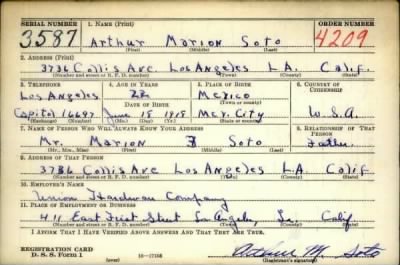 SERIAL NUMBER 1. NAME (Print) ORDER NUMBER
3587 Arthur Marion Soto 4209
(First) (Middle) (Last)
2. ADDRESS (Print)
3736 Collis Ave. Los Angeles L.A. Calif.
(Number and street or R. F. D. number) (Town) (County) (State)
3. TELEPHONE 4. AGE IN YEARS 5. PLACE OF BIRTH 6. COUNTRY OF CITIZENSHIP
Los Angeles 22 Mexico
DATE OF BIRTH (Town or county)
Capitol 16697 June 18 1918 Mex. City U.S.A.
(Exchange) (Number) (Mo.) (Day) (Yr.) (State or country)
7. NAME OF PERSON WHO WILL ALWAYS KNOW YOUR ADDRESS 8. RELATIONSHIP OF THAT PERSON
Mr. Marion Soto Father
(Mr., Mrs., Miss) (First) (Middle) (Last)
9. ADDRESS OF THAT PERSON
3736 Collis Ave Los Angeles L.A. Calif
(Number and street or R. F. D. number) (Town) (County) (State)
10. EMPLOYER'S NAME
Union Hardware Company
11. PLACE OF EMPLOYMENT OR BUSINESS
411 East First Street Los Angeles, La. Calif.
(Number and street or R. F. D. number) (Town) (County) (State)
I AFFIRM THAT I HAVE VERIFIED ABOVE ANSWERS AND THAT THEY ARE TRUE.
REGISTRATION CARD
D. S. S. FORM 1 16—17105 Arthur M. Soto
(Registrant's signature)